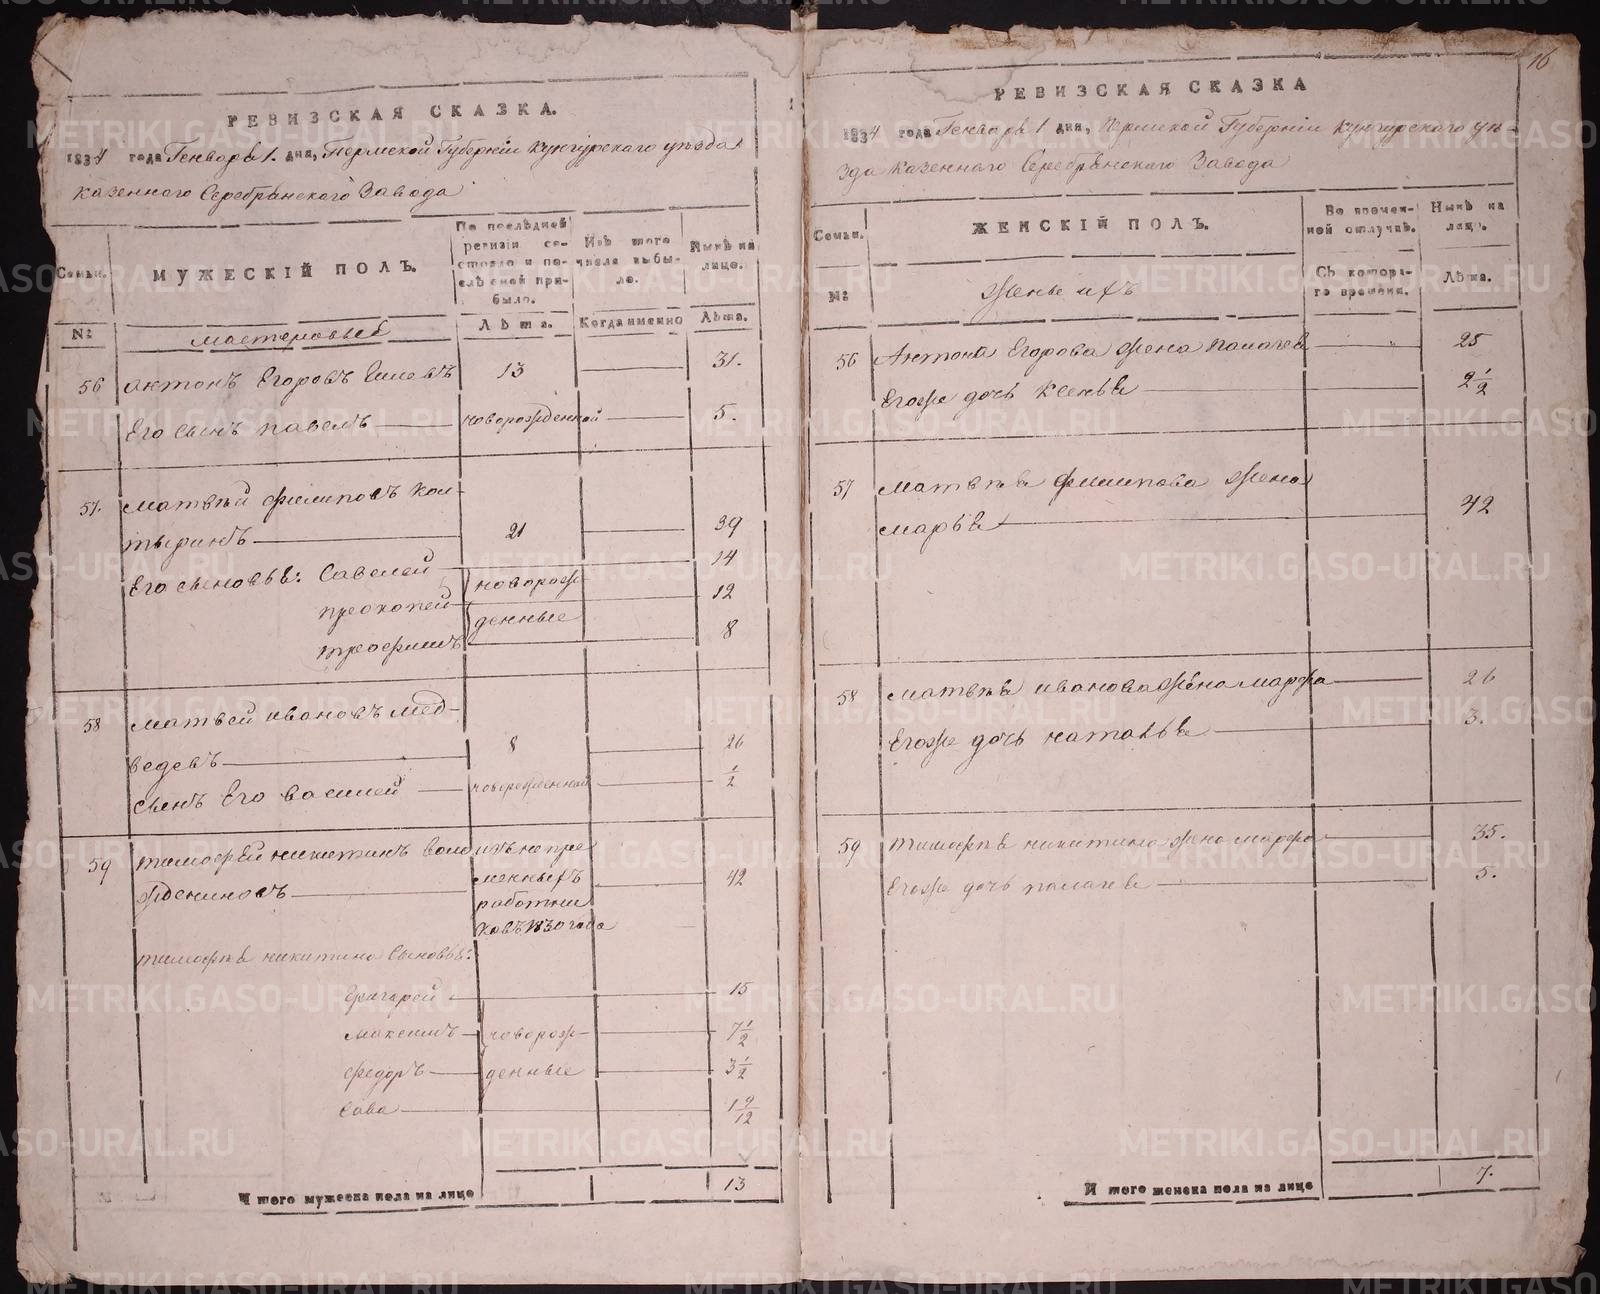 16
РЕВИЗСКАЯ СКАЗКА.
1834 года Генваря 1. дня, Пермской Губернiи Кунгурского уѣзда
казенного Серебрянского Завода
Семьи.
МУЖЕСКIЙ ПОЛЪ.
По послѣдней ревизiи состояло и послѣ оной прибыло.
Изъ того числа выбыло.
Нынѣ на лицо.
№
мастеровые
Лѣта.
Когда именно
Лѣта.
56 Антонъ Егоровъ 13 31.
Его сынъ павелъ новорожденной 5.
57. матвѣй филиповъ кол-
тыринъ 21 39
Его сыновья: Савелей новорож 14
прокопей денные 12
трофимъ 8
58 матвей ивановъ мед-
ведевъ 8 26
сынъ Его василей новорожденной 1/2
59 тимофѣй никитинъ изъ непре
менныхъ 42
работни
ковъ 1830 года
тимофѣя никитина сыновья:
Григорей 15
максимъ новорож- 7 1/2
федоръ денные 3 1/2
Сава 1 9/12
Итого мужеска пола на лице 13
РЕВИЗСКАЯ СКАЗКА
1834 года Генваря 1 дня, Пермской Губернiи Кунгурского уѣ-
зда казенного Серебрянского Завода
Семьи.
ЖЕНСКIЙ ПОЛЪ.
Во времен-
ной отлучкѣ.
Нынѣ на
лицо.
№
Жены ихъ
Съ котора-
го времени.
Лѣта.
56 Антона Егорова жена палагея 25
Егоже дочь Ксенья 2 1/2
57 матвѣя филипова жена
марья 42
58 матвѣя иванова жена марфа 26
Егоже дочь наталья 3.
59 тимофѣя никитина жена марфа 35.
Егоже дочь палагея 5.
Итого женска пола на лице 7.
METRIKI.GASO-URAL.RU